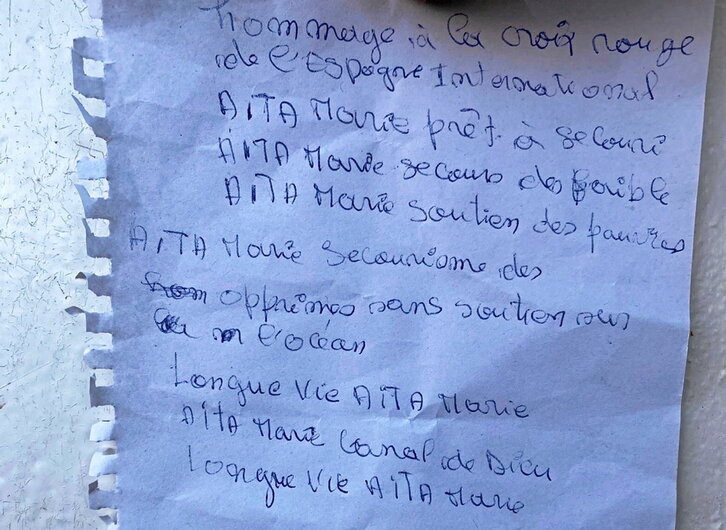 hommage à la croix rouge
de l'Espagne International
AiTA Marie prêt à secouri
AiTA Marie secours des faible
AiTA Marie soutien des pauvres
AiTA Marie secourisme des
opprimés sans soutien sur
l'océan
Longue Vie AiTA Marie
AiTA Marie Canal de Dieu
Longue Vie AiTA Marie